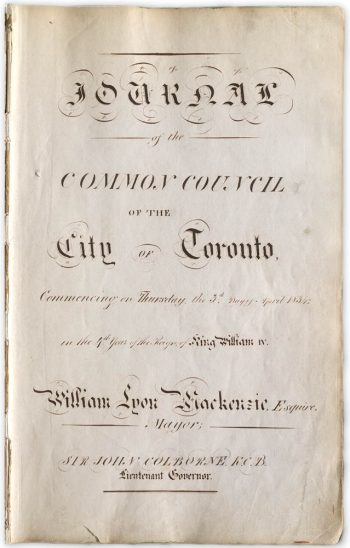 JOURNAL
of the
COMMON COUNCIL
OF THE
City OF Toronto,
Commencing on Thursday, the 3.d day of April 1834;
in the 4th Year of the Reign of King William IV.
William Lyon Mackenzie, Esquire,
Mayor;
SIR JOHN COLBORNE, K.C.B.
Lieutenant Governor.